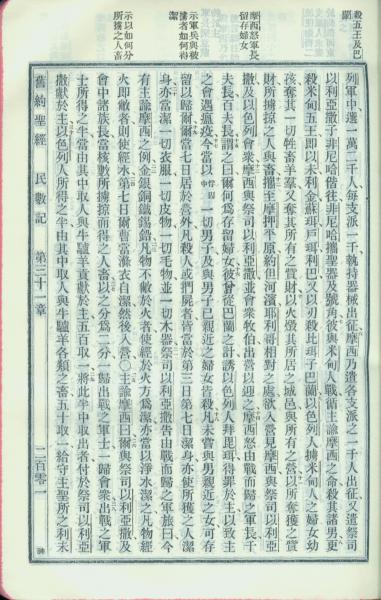 殺五王及巴蘭
摩西怒軍長留存婦女
示軍兵與被擄者如何得潔
示以如何分所擄之人畜
列軍中選一萬二千人每支派一千執持器械出征摩西乃遣各支派之一千人出征又遣祭司
以利亞撒子非尼哈偕往非尼哈攜聖器及號角彼與米甸人戰循主諭摩西之命殺其諸男更
殺米甸五王即以未利金蘇珥戶珥利巴又以刃殺比珥子巴蘭以色列人擄米甸人之婦女幼
孩奪其一切牲畜羊羣又奪其所有之貲財以火燬其所居之城邑與所有之營以所奪獲之貲
財所擄掠之人與畜攜至摩押平原約但河濱耶利哥相對之處欲入營見摩西與祭司以利亞
撒及以色列會衆摩西與祭司以利亞撒並會衆牧伯出營以迎之摩西怒由戰而歸之軍長千
夫長百夫長謂之曰何爲存留婦女彼曾從巴蘭之計誘以色列人拜毘珥得罪於主以致主
之會遇瘟疫今當以一切男子及與男子已親近之婦女皆殺凡未嘗與男親近之女可存
留以歸爾爾當七日居於營外凡殺人或捫屍者皆當於第三日第七日潔身亦使所獲之人潔
身亦當潔一切衣服一切皮物一切毛物並一切木器祭司以利亞撒告由戰而歸之軍旅曰今
有主諭摩西之例金銀銅鐵錫鉛凡物不敝於火者使經於火方爲潔亦當以淨水潔之凡物經
火即敝者則使經水第七日爾曹當滌衣自潔然後入營〇主諭摩西曰爾與祭司以利亞撒及
會中諸族長當核數所擄掠而得之人畜以之分爲二分一歸出戰之軍士一歸會衆出戰之軍
士所得之半當由其中取人與牛驢羊貢獻於主五百取一將此半中取出者付於祭司以利亞
撒獻於主以色列人所得之半由其中取人與牛驢羊各類之畜五十取一給守主聖所之利未
舊約聖經 民數記 第三十一章 二百零一